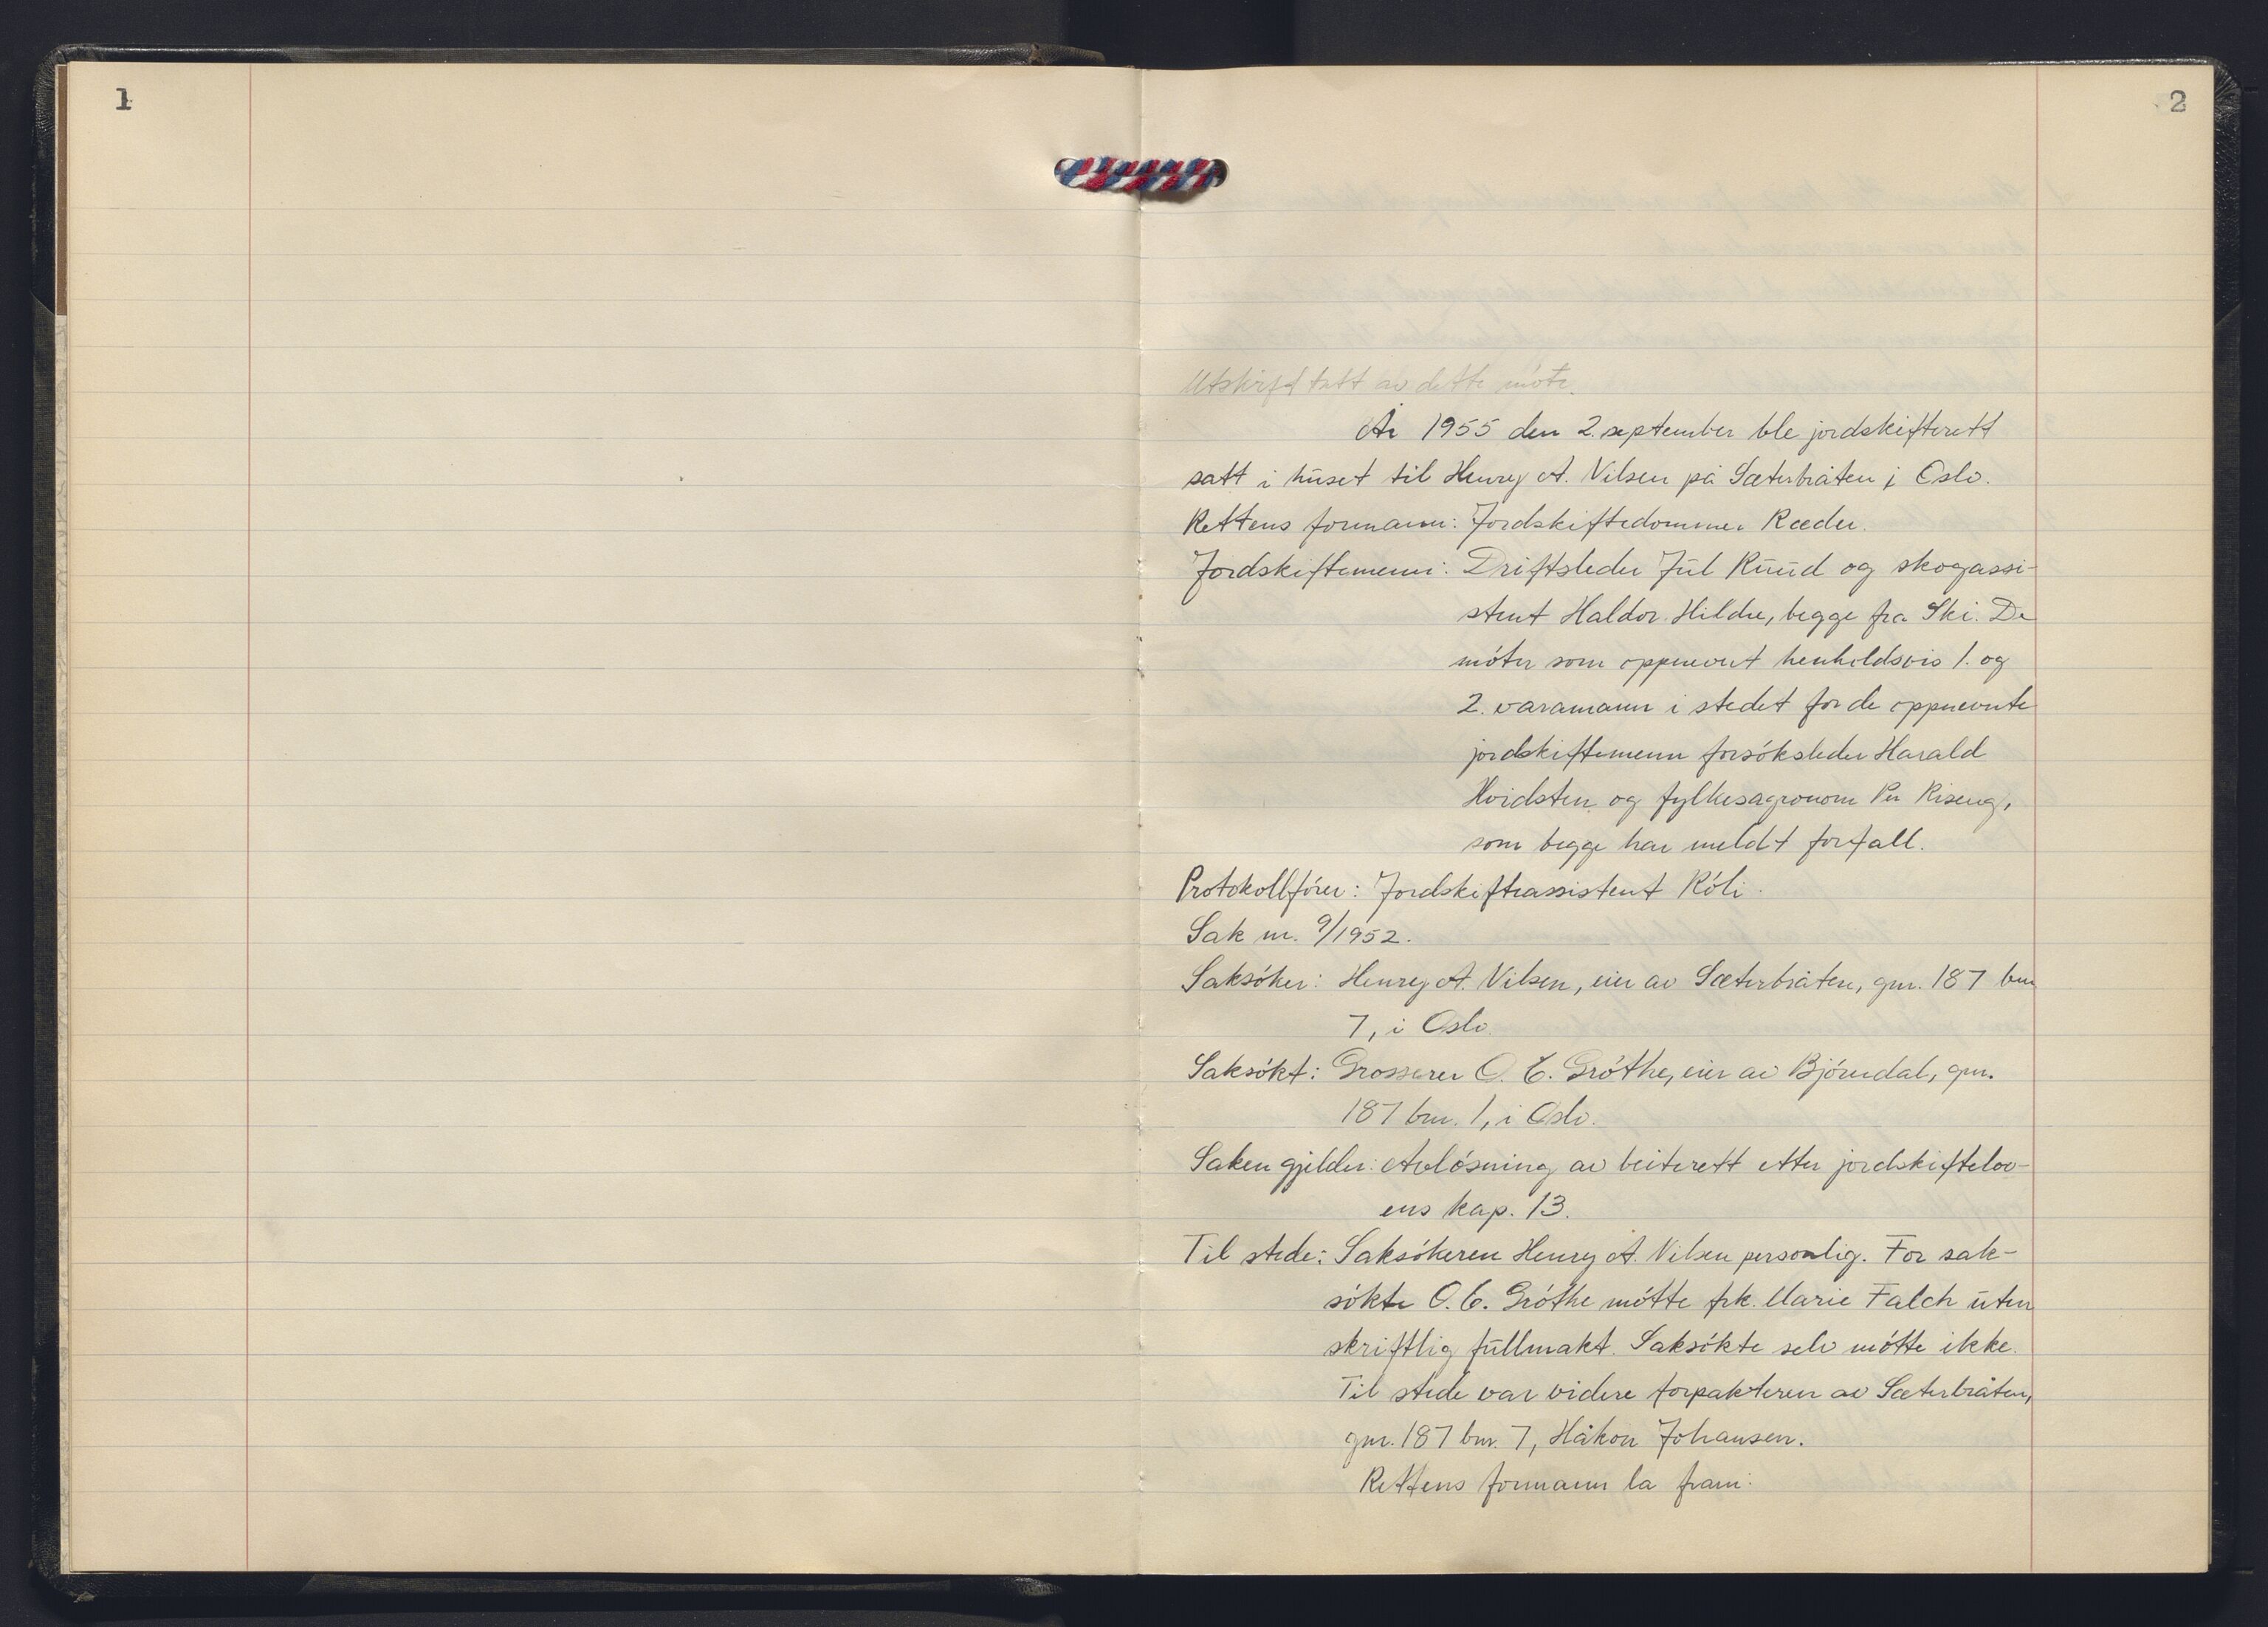 1
2
Utskrift tatt av dette møte.
År 1955 den 2. september ble jordskifterett
satt i huset til Henry A. Nilsen på Sæterbråten i Oslo.
Rettens formann: Jordskiftedommer Ræder.
Jordskiftemenn: Driftsleder Jul Ruud og skogassi-
stent Haldor Hildre, begge fra Ski. De
møter som oppnevnt henholdsvis 1. og
2. varamann i stedet for de oppnevnte
jordskiftemenn forsøksleder Harald
Hvidsten og fylkesagronom Per Riseng,
som begge har meldt forfall.
Protokollfører: Jordskifteassistent Røli.
Sak nr. 9/1952.
Saksøker: Henry A. Nilsen, eier av Sæterbråten, gnr. 187 bnr
7, i Oslo.
Saksøkt: Grosserer O. C. Grøthe, eier av Bjørndal, gnr.
187 bnr. 1, i Oslo.
Saken gjelder: Avløsning av beiterett etter jordskiftelov-
ens kap. 13.
Til stede: Saksøkeren Henry A. Nilsen personlig. For sak-
søkte O. C. Grøthe møtte frk. Marie Falch uten
skriftlig fullmakt. Saksøkte selv møtte ikke.
Til stede var videre forpakteren av Sæterbråten,
gnr. 187 bnr. 7, Håkon Johansen.
Rettens formann la fram: